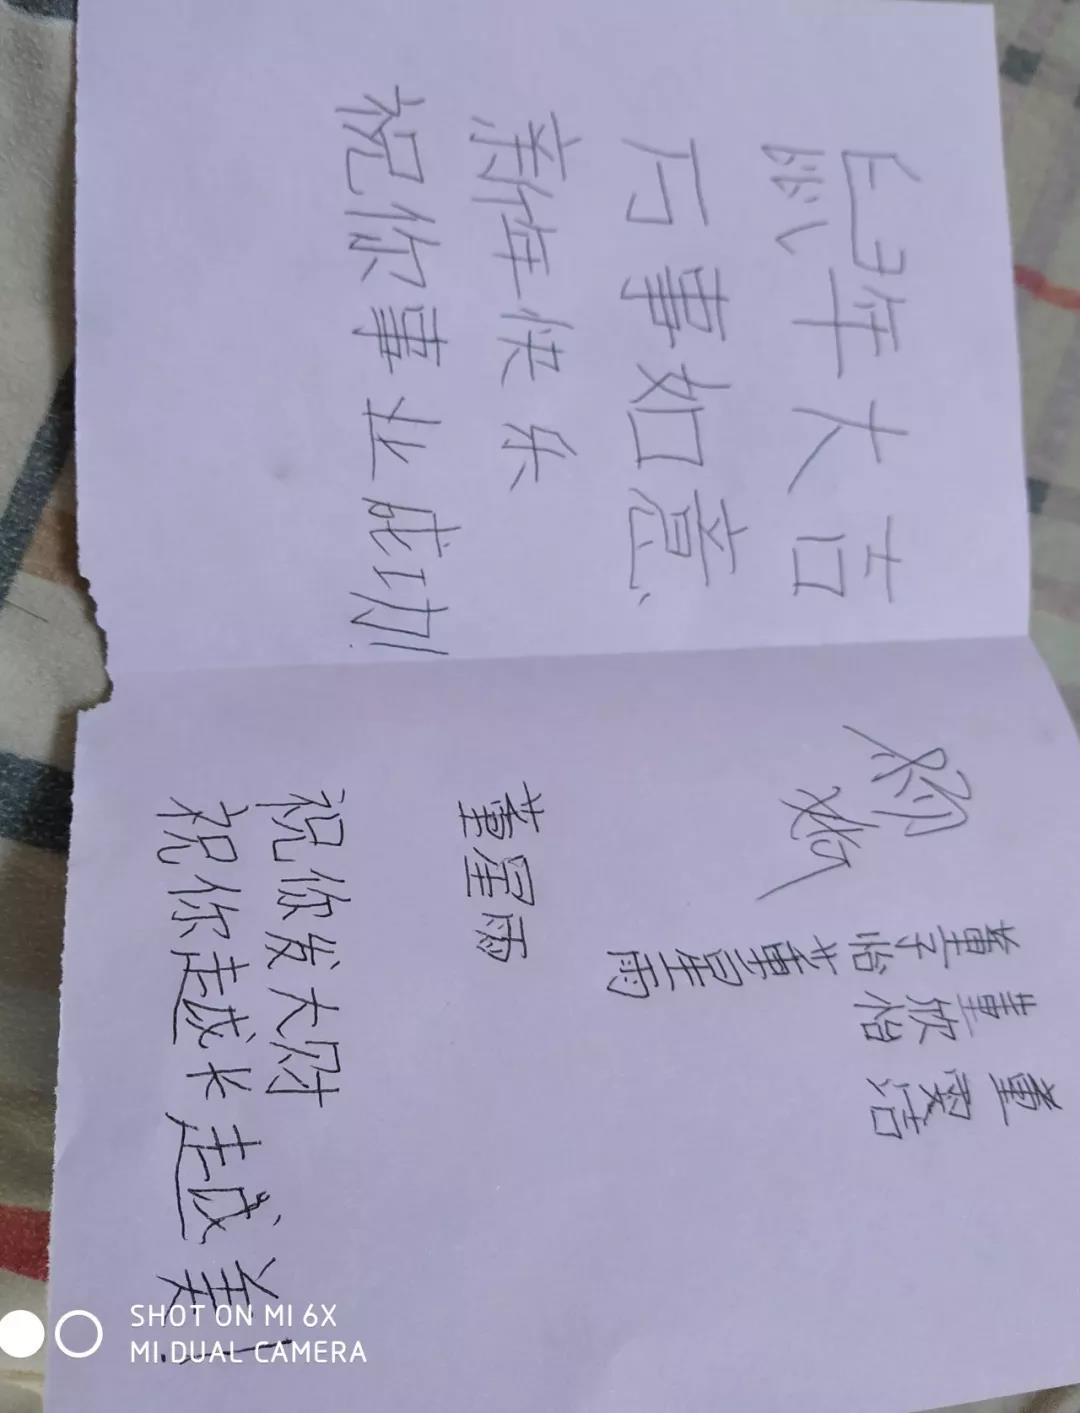 鼠年大吉
万事如意、
新年快乐
祝你事业成功!
董子怡 董欣怡 董雯洁
董星雨
董星雨
祝你发大财
祝你越长越美!